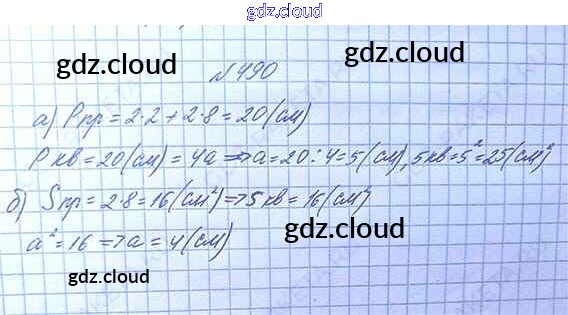 gdz.cloud
gdz.cloud gdz.cloud
№490
а) Pпр = 2·2 + 2·8 = 20 (см)
Pкв = 20 (см) = 4a => a = 20 : 4 = 5 (см), Sкв = 5² = 25 (см²)
б) Sпр = 2·8 = 16 (см²) => Sкв = 16 (см²)
a² = 16 => a = 4 (см)
gdz.cloud
gdz.cloud